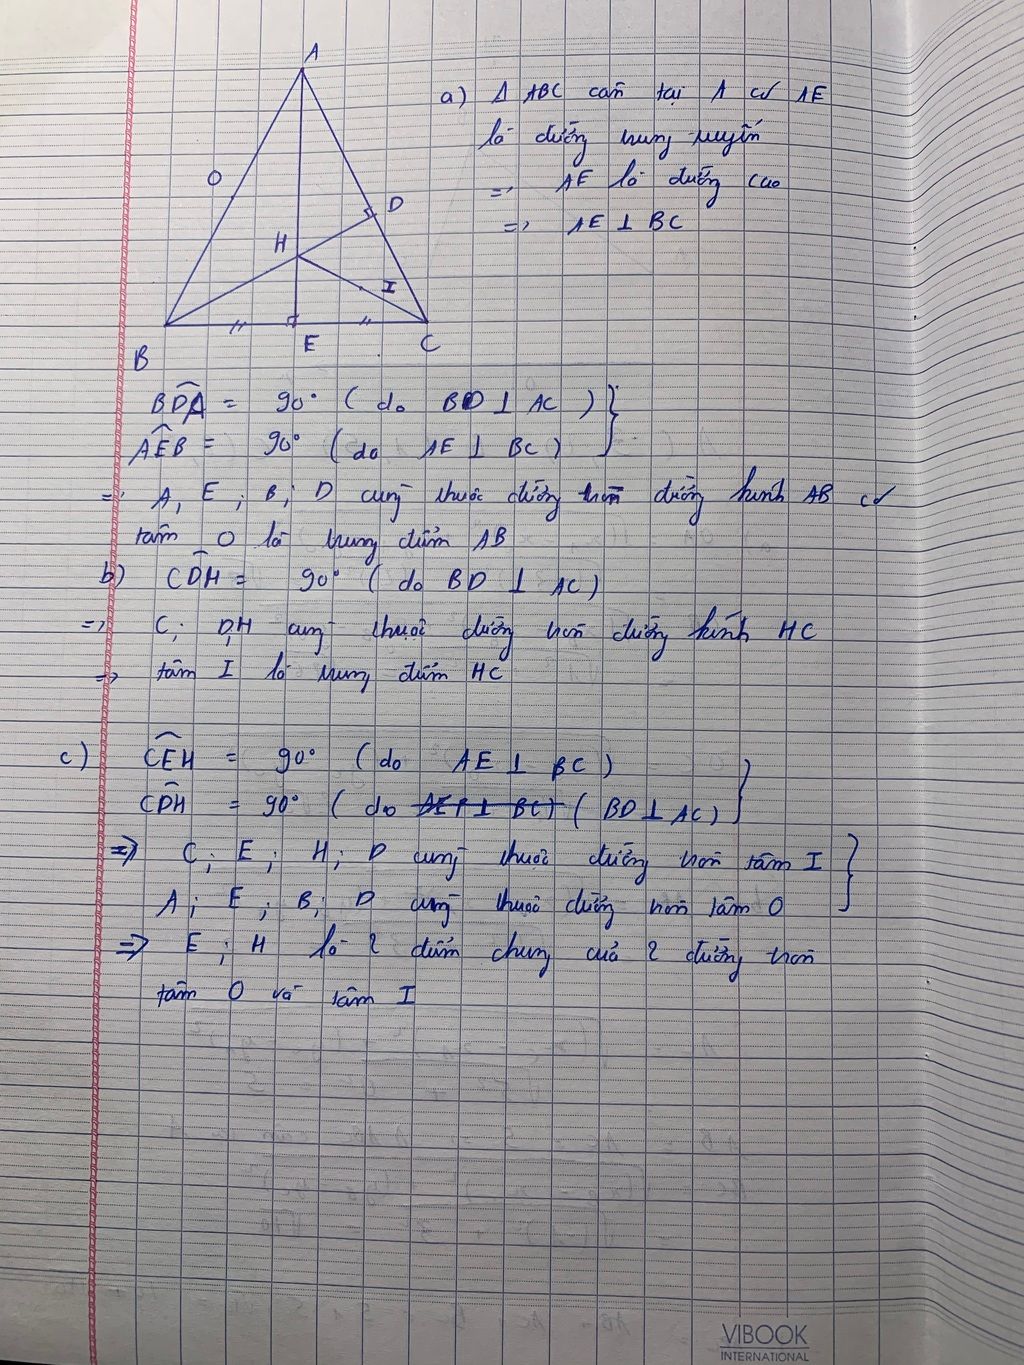 A
a) Δ ABC cân tại A có AE
là đường trung tuyến
=> AE là đường cao
=> AE ⊥ BC
O
D
H
I
B
E
C
BDA = 90° ( do BD ⊥ AC )
AEB = 90° ( do AE ⊥ BC )
=> A, E ; B ; D cùng thuộc đường tròn đường kính AB có
tâm O là trung điểm AB
b) CDH = 90° ( do BD ⊥ AC)
=> C ; D, H cùng thuộc đường tròn đường kính HC
=> tâm I là trung điểm HC
c) CEH = 90° (do AE ⊥ BC)
CDH = 90° ( do AE ⊥ BC) ( BD ⊥ AC)
=> C ; E ; H ; D cùng thuộc đường tròn tâm I
A ; E ; B ; D cùng thuộc đường tròn tâm O
=> E ; H là 2 điểm chung của 2 đường tròn
tâm O và tâm I
VIBOOK
INTERNATIONAL